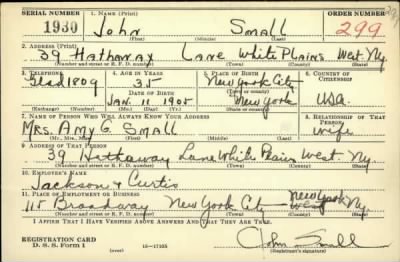 SERIAL NUMBER 1. NAME (Print) ORDER NUMBER
1930 John Small 299
2. ADDRESS (Print)
39 Hathaway Lane White Plains West. Ny.
(Number and street or R. F. D. number) (Town) (County) (State)
3. TELEPHONE 4. AGE IN YEARS 5. PLACE OF BIRTH 6. COUNTRY OF CITIZENSHIP
1809 35 New York City
DATE OF BIRTH (Town or county)
Jan. 11 1905 New York USA.
(Mo.) (Day) (Yr.) (State or country)
7. NAME OF PERSON WHO WILL ALWAYS KNOW YOUR ADDRESS 8. RELATIONSHIP OF THAT PERSON
Mrs. Amy G. Small wife
9. ADDRESS OF THAT PERSON
39 Hathaway Lane White Plains West. Ny.
(Number and street or R. F. D. number) (Town) (County) (State)
10. EMPLOYER'S NAME
Jackson & Curtis
11. PLACE OF EMPLOYMENT OR BUSINESS
115 Broadway New York City New York Ny.
(Number and street or R. F. D. number) (Town) (County) (State)
I AFFIRM THAT I HAVE VERIFIED ABOVE ANSWERS AND THAT THEY ARE TRUE.
REGISTRATION CARD
D. S. S. Form 1 (over) 16—17105 John Small
(Registrant's signature)